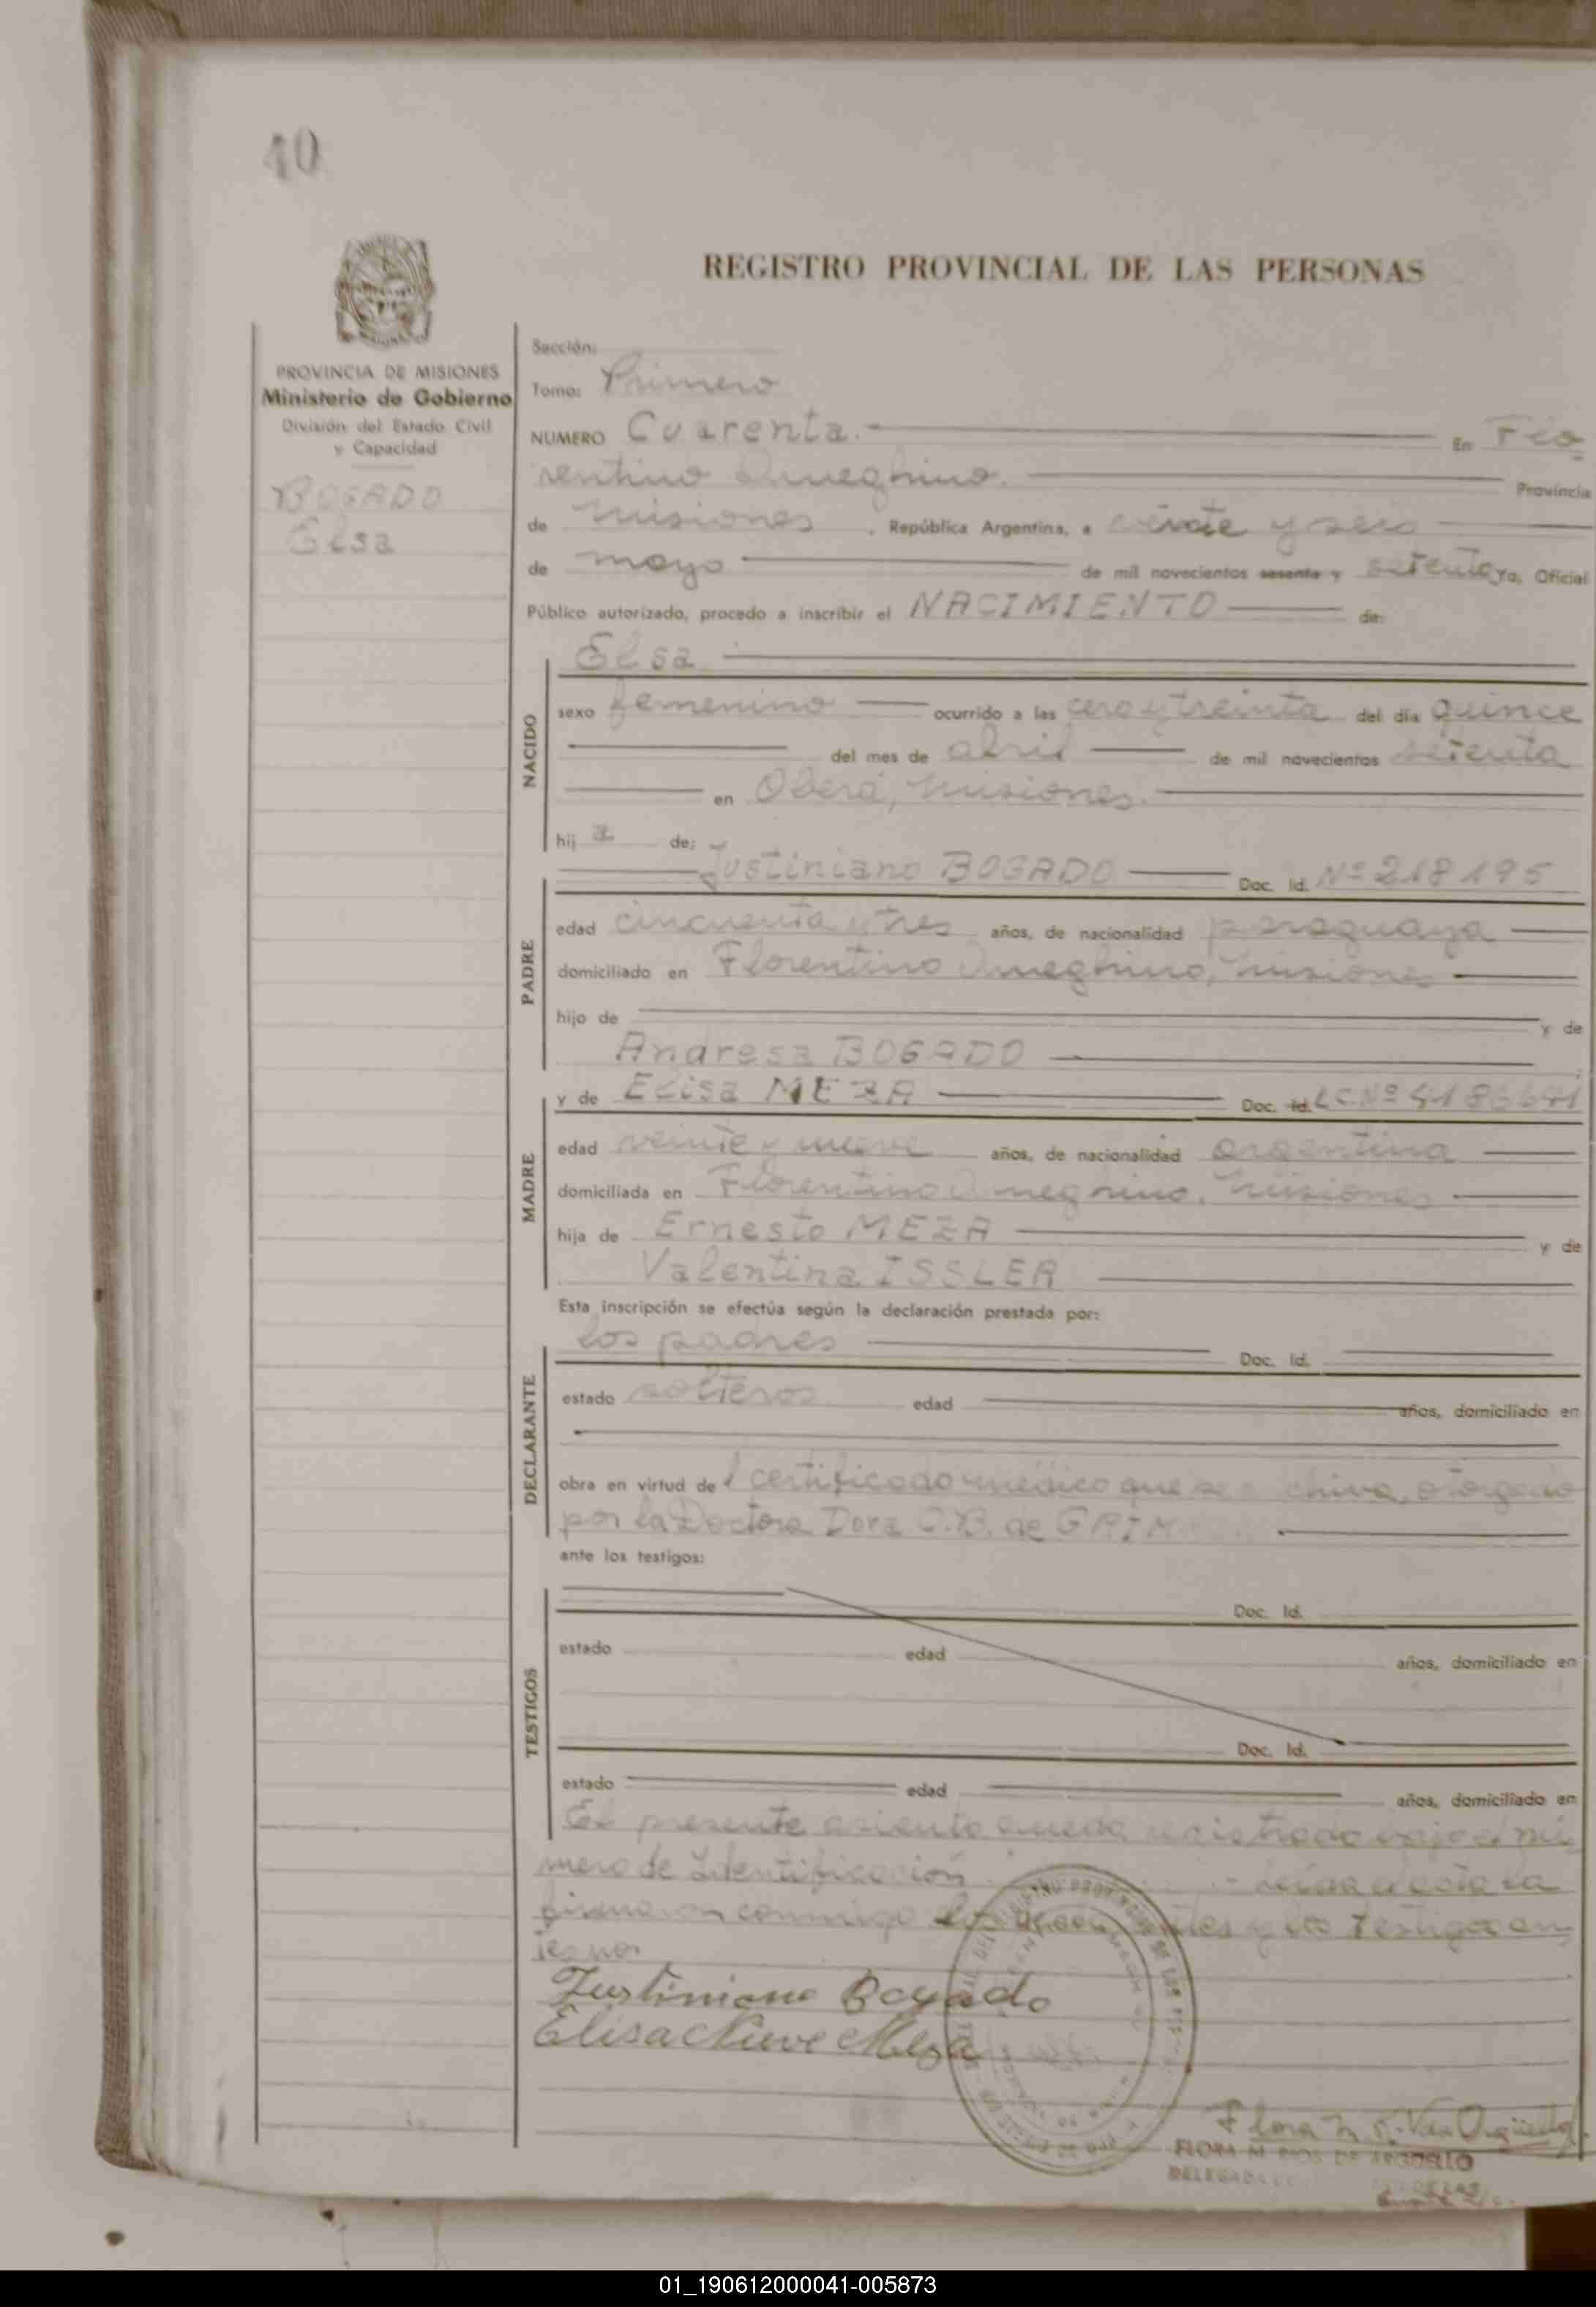 40
REGISTRO PROVINCIAL DE LAS PERSONAS
PROVINCIA DE MISIONES
Ministerio de Gobierno
División del Estado Civil
y Capacidad
BOGADO
Elsa
Sección:
Tomo: Primero
NUMERO Cuarenta. En Flo
rentino Ameghino. Provincia
de Misiones, República Argentina, a veinte y seis
de mayo de mil novecientos sesenta y setenta yo, Oficial
Público autorizado, procedo a inscribir el NACIMIENTO de:
NACIDO
Elsa
sexo femenino ocurrido a las cero y treinta del día quince
del mes de abril de mil novecientos setenta
en Oberá, Misiones.
hij a de:
PADRE
Justiniano BOGADO Doc. Id. Nº 218195
edad cincuenta y tres años, de nacionalidad paraguaya
domiciliado en Florentino Ameghino, Misiones
hijo de y de
Andresa BOGADO
MADRE
y de Elisa MEZA Doc. Id. L.C.Nº
edad veinte y nueve años, de nacionalidad argentina
domiciliada en Florentino Ameghino, Misiones
hija de Ernesto MEZA y de
Valentina ISSLER
Esta inscripción se efectúa según la declaración prestada por:
DECLARANTE
los padres Doc. Id.
estado solteros edad años, domiciliado en
obra en virtud del certificado médico que se archiva, otorgado
por la Doctora Dora C.B. de
ante los testigos:
TESTIGOS
Doc. Id.
estado edad años, domiciliado en
Doc. Id.
estado edad años, domiciliado en
El presente asiento queda registrado bajo el nú
mero de Identificación Leída el acta la
firmaron conmigo los y los testigos an
Justiniano Bogado
Elisa Nieve Meza
FLORA M RIOS DE ARGÜELLO
DELEGADA
01_190612000041-005873